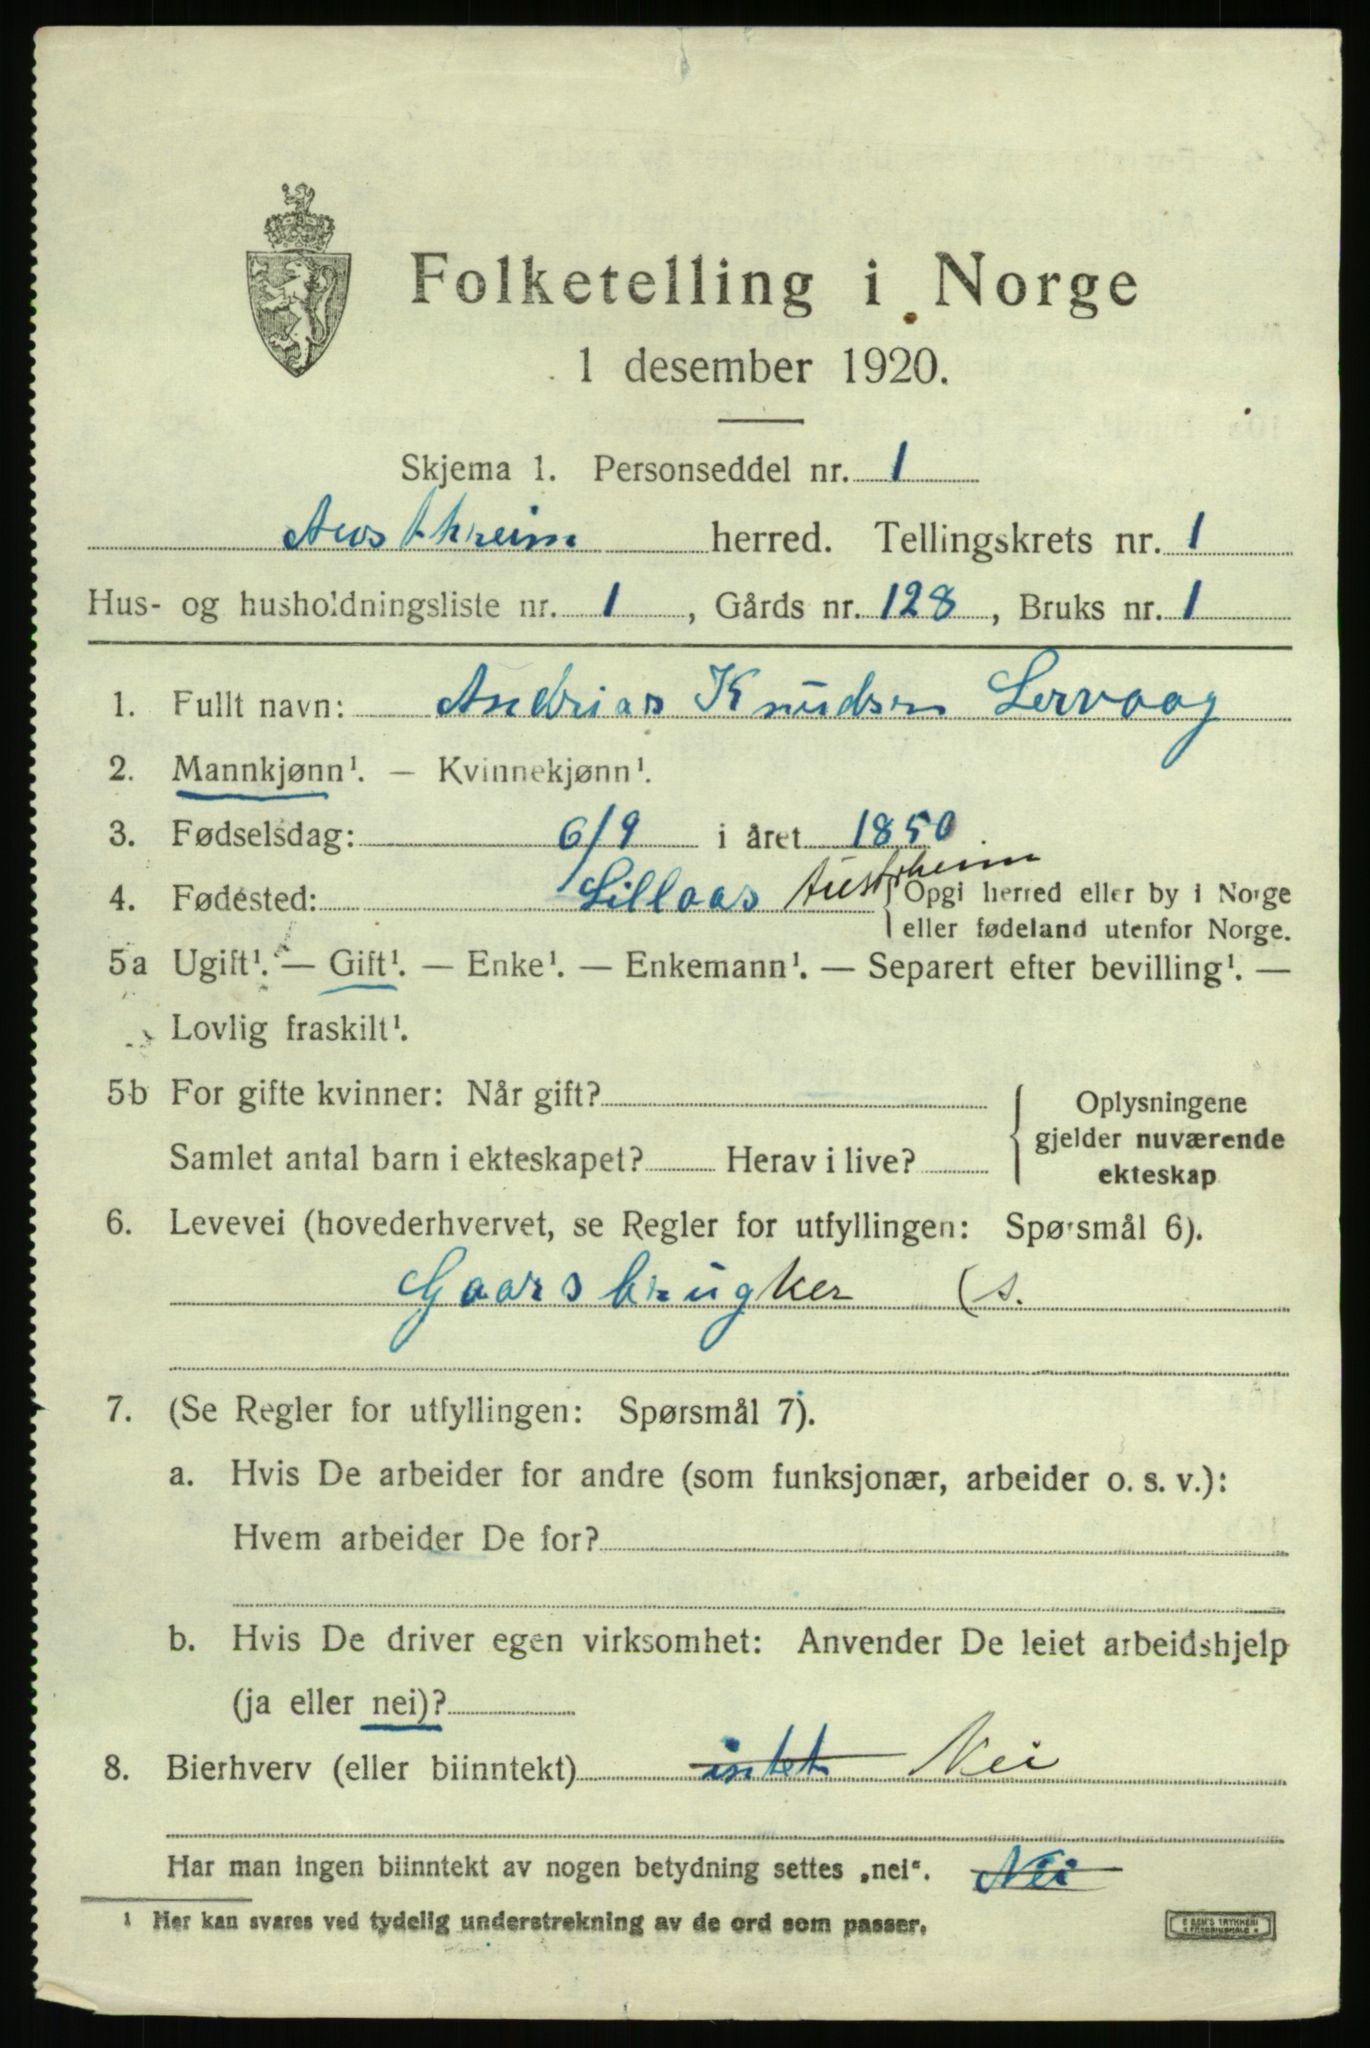 Folketelling i Norge
1 desember 1920.
Skjema 1. Personseddel nr. 1
Austrheim herred. Tellingskrets nr. 1
Hus- og husholdningsliste nr. 1, Gårds nr. 128, Bruks nr. 1
1. Fullt navn: Andrias Knudsen Lervaag
2. Mannkjønn¹. — Kvinnekjønn¹.
3. Fødselsdag: 6/9 i året 1850.
4. Fødested: Lillaas Austrheim Opgi herred eller by i Norge
eller fødeland utenfor Norge.
5a Ugift¹. — Gift¹. — Enke¹. — Enkemann¹. — Separert efter bevilling¹. —
Lovlig fraskilt¹.
5b For gifte kvinner: Når gift?
Samlet antal barn i ekteskapet? Herav i live?
Oplysningene
gjelder nuværende
ekteskap
6. Levevei (hovederhvervet, se Regler for utfyllingen: Spørsmål 6).
Gaarsbrugker (s.
7. (Se Regler for utfyllingen: Spørsmål 7).
a. Hvis De arbeider for andre (som funksjonær, arbeider o. s. v.):
Hvem arbeider De for?
b. Hvis De driver egen virksomhet: Anvender De leiet arbeidshjelp
(ja eller nei)?
8. Bierhverv (eller biinntekt) intet Nei
Har man ingen biinntekt av nogen betydning settes „nei“. Nei
¹ Her kan svares ved tydelig understrekning av de ord som passer.